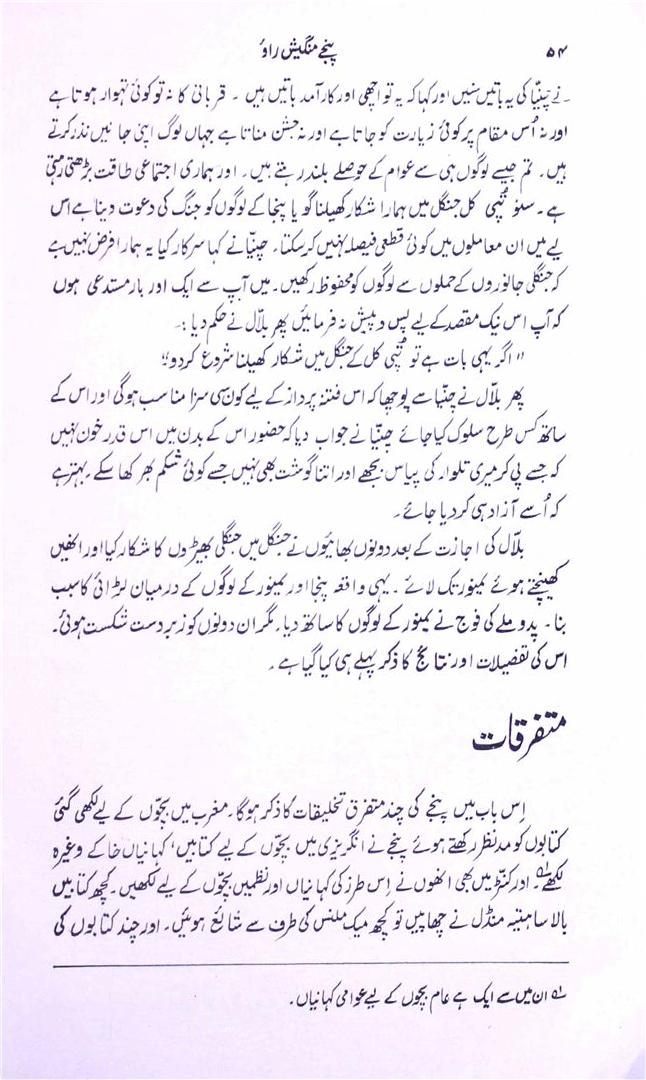 ۵۴
پنجے منگیش راؤ
نے چنیّا کی یہ باتیں سنیں اور کہا کہ یہ تو اچھی اور کارآمد باتیں ہیں ۔ قربانی کا نہ تو کوئی تہوار ہوتا ہے
اور نہ اُس مقام پر کوئی زیارت کو جاتا ہے اور نہ جشن مناتا ہے جہاں لوگ اپنی جانیں نذر کرتے
ہیں۔ تم جیسے لوگوں ہی سے عوام کے حوصلے بلند رہتے ہیں۔ اور ہماری اجتماعی طاقت بڑھتی رہتی
ہے۔ سنو تُپّی کل جنگل میں ہمارا شکار کھیلنا گویا پنجا کے لوگوں کو جنگ کی دعوت دینا ہے اس
لیے میں ان معاملوں میں کوئی قطعی فیصلہ نہیں کرسکتا۔ چنیّا نے کہا سرکار کیا یہ ہمارا فرض نہیں ہے
کہ جنگلی جانوروں کے حملوں سے لوگوں کو محفوظ رکھیں۔ میں آپ سے ایک اور بار مستدعی ہوں
کہ آپ اس نیک مقصد کے لیے پس و پیش نہ فرمائیں پھر بلّال نے حکم دیا :۔
"اگر یہی بات ہے تو تُپّی کل کے جنگل میں شکار کھیلنا شروع کردو"
پھر بلّال نے چنیّا سے پوچھا کہ اس فتنہ پرداز کے لیے کون سی سزا مناسب ہوگی اور اس کے
ساتھ کس طرح سلوک کیا جائے چنیّا نے جواب دیا کہ حضور اس کے بدن میں اس قدر خون نہیں
کہ جسے پی کر میری تلوار کی پیاس بجھے اور اتنا گوشت بھی نہیں جسے کوئی شکم بھر کھا سکے بہتر ہے
کہ اُسے آزاد ہی کر دیا جائے۔
بلّال کی اجازت کے بعد دونوں بھائیوں نے جنگل میں جنگلی بھیڑوں کا شکار کیا اور انھیں
کھینچتے ہوئے کیمنور تک لائے ۔ یہی واقعہ پنجا اور کیمنور کے لوگوں کے درمیان لڑائی کا سبب
بنا۔ پدوملے کی فوج نے کیمنور کے لوگوں کا ساتھ دیا۔ مگر ان دونوں کو زبردست شکست ہوئی۔
اس کی تفصیلات اور نتائج کا ذکر پہلے ہی کیا گیا ہے۔
متفرقات
اِس باب میں پنجے کی چند متفرق تخلیقات کا ذکر ہوگا۔ مغرب میں بچّوں کے لیے لکھی گئی
کتابوں کو مدِنظر رکھتے ہوئے پنجے نے انگریزی میں بچّوں کے لیے کتابیں، کہانیاں خاکے وغیرہ
لکھے۔ اور کنڑ میں بھی انھوں نے اِس طرز کی کہانیاں اور نظمیں بچّوں کے لیے لکھیں۔ کچھ کتابیں
بالا ساہتیہ منڈل نے چھاپیں تو کچھ میک ملنس کی طرف سے شائع ہوئیں۔ اور چند کتابوں کی
ان میں سے ایک ہے عام بچوں کے لیے عوامی کہانیاں۔